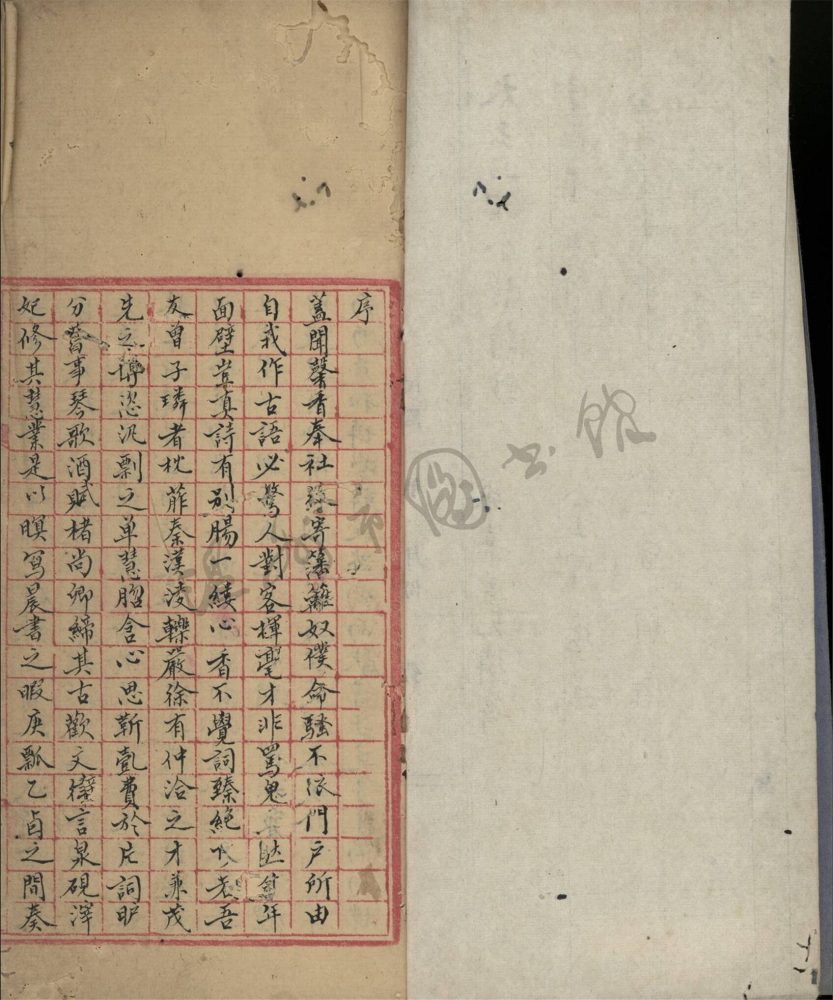 序
蓋聞馨香奉社發寄藩籬奴僕命騷不依門戶所由
自我作古語必驚人對客揮毫才非罵鬼年
面壁豈真詩有別腸一縷心香不覺詞臻絕吾
友曾子璘者枕葄秦漢淩轢嚴徐有仲洽之才兼茂
先之博恣汎剽之單慧脗含心思靳氍費於片詞昈
分蓄事琴歌酒賦楮尚卿締其古歡文櫸言泉硯滓
妃修其慧業是以暝寫晨書之暇庚瓢乙卣之間奏